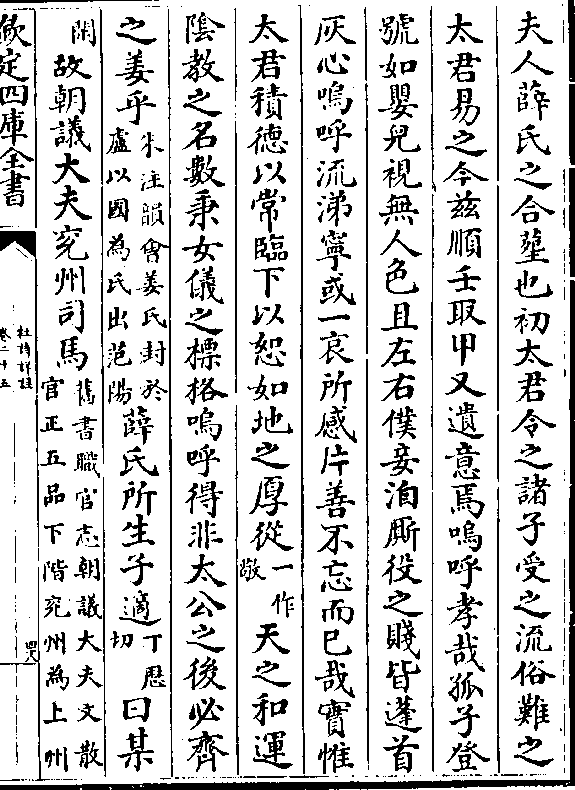 夫人薛氏之合塟也初太君令之諸子受之流俗難之
太君易之今兹順壬取甲又遺意焉嗚呼孝哉孤子登
號如嬰兒視無人色且左右僕妾洎厮役之賤皆蓬首
灰心嗚呼流涕寧或一哀所感片善不忘而已哉實惟
太君積德以常臨下以恕如地之厚從一作敬天之和運
陰教之名數秉女儀之標格嗚呼得非太公之後必齊
之姜乎朱注韻會姜氏封於盧以國為氏出范陽薛氏所生子適丁厯切曰某
閑故朝議大夫兖州司馬舊書職官志朝議大夫文散官正五品下階兖州為上州
欽定四庫全書
杜詩詳註
卷二十五
四八